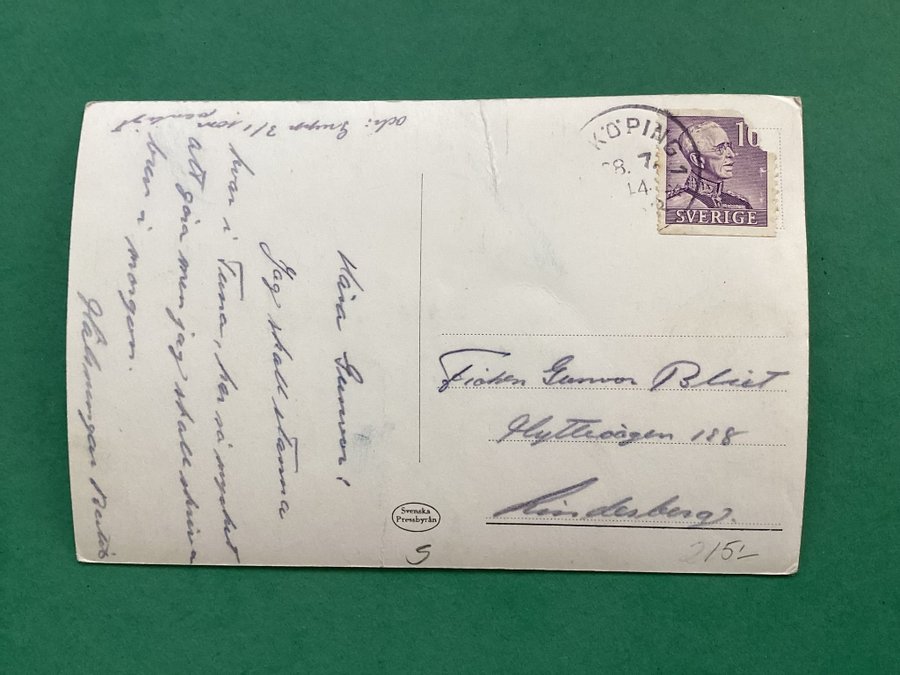 Kära Gunvor!
Jag skall stanna
kvar i Tuna, har så mycket
att göra men jag skall skriva
brev i morgon.
Hälsningar
och: Grupp 3/1 som
KÖPING 1
28. 7.
14
10
SVERIGE
Fröken Gunvor Blixt
Hyttvägen 188
Lindesberg.
Svenska
Pressbyrån
S
215:-